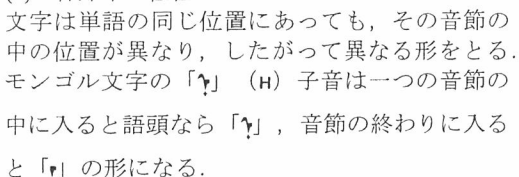 文字は単語の同じ位置にあっても，その音節の
中の位置が異なり，したがって異なる形をとる.
モンゴル文字の「」（H）子音は一つの音節の
中に入ると語頭なら「」，音節の終わりに入る
と「」の形になる.